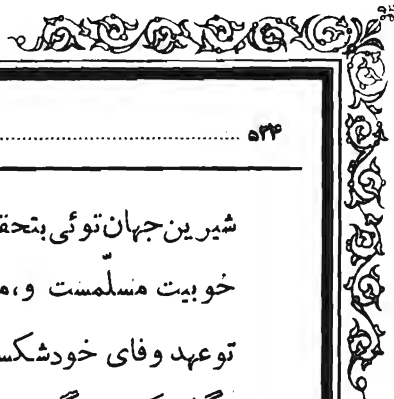 ۵۳۴
شیرین جهان توئی بتحق
خوبیت مسلّمست و،م
تو عهد وفای خودشکس